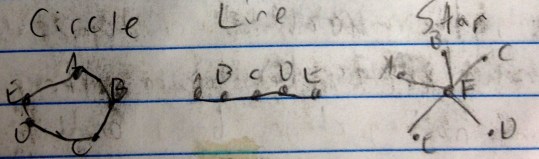 Circle Line Star
B
A B C D E A C
A
E B F
D C E D